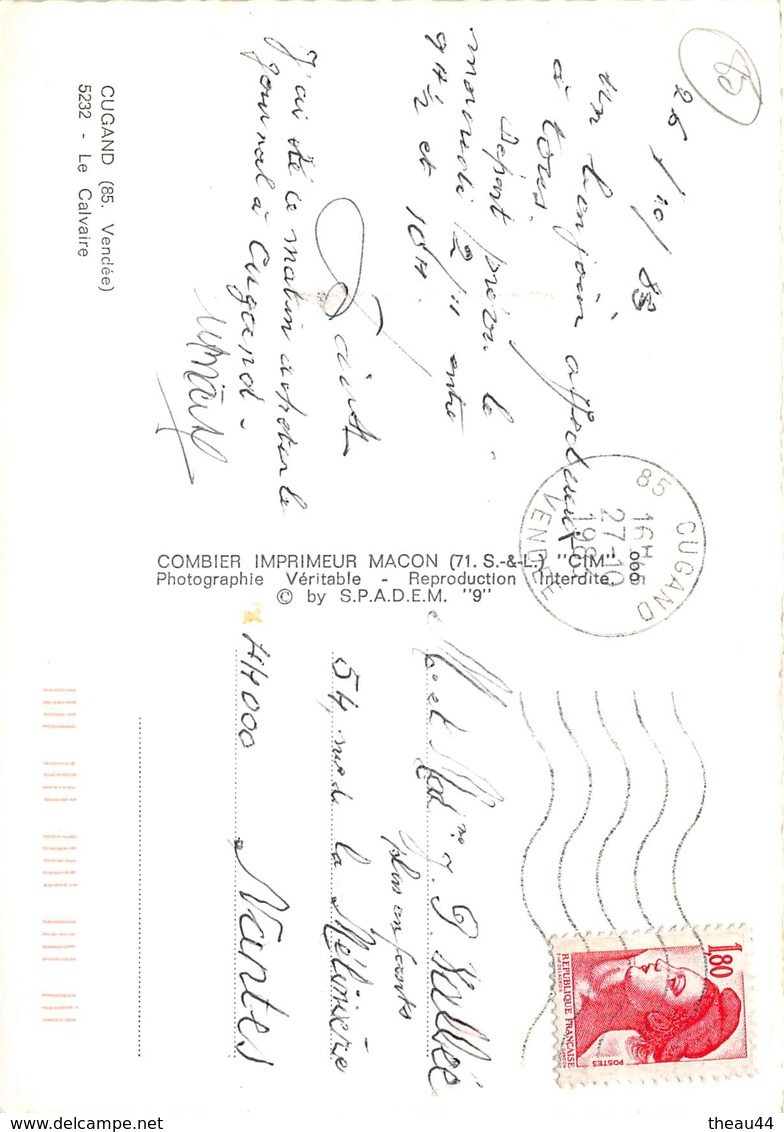 80
26/10/83
un bonjour affectueux
à tous.
Départ prévu le
mercredi 2/11 entre
9H 1/2 et 10H.
J'ai été ce matin acheter le
journal à Cugand.
CUGAND (85. Vendée)
5232 - Le Calvaire
COMBIER IMPRIMEUR MACON (71. S.-&-L.) "CIM"
Photographie Véritable - Reproduction Interdite
© by S.P.A.D.E.M. "9"
85 CUGAND
16H
27-10
1983
VENDEE
1,80
REPUBLIQUE FRANÇAISE
POSTES
M. et Mad
plus enfants
54, rue de la Mélinière
44000 Nantes
delcampe.net
theau44